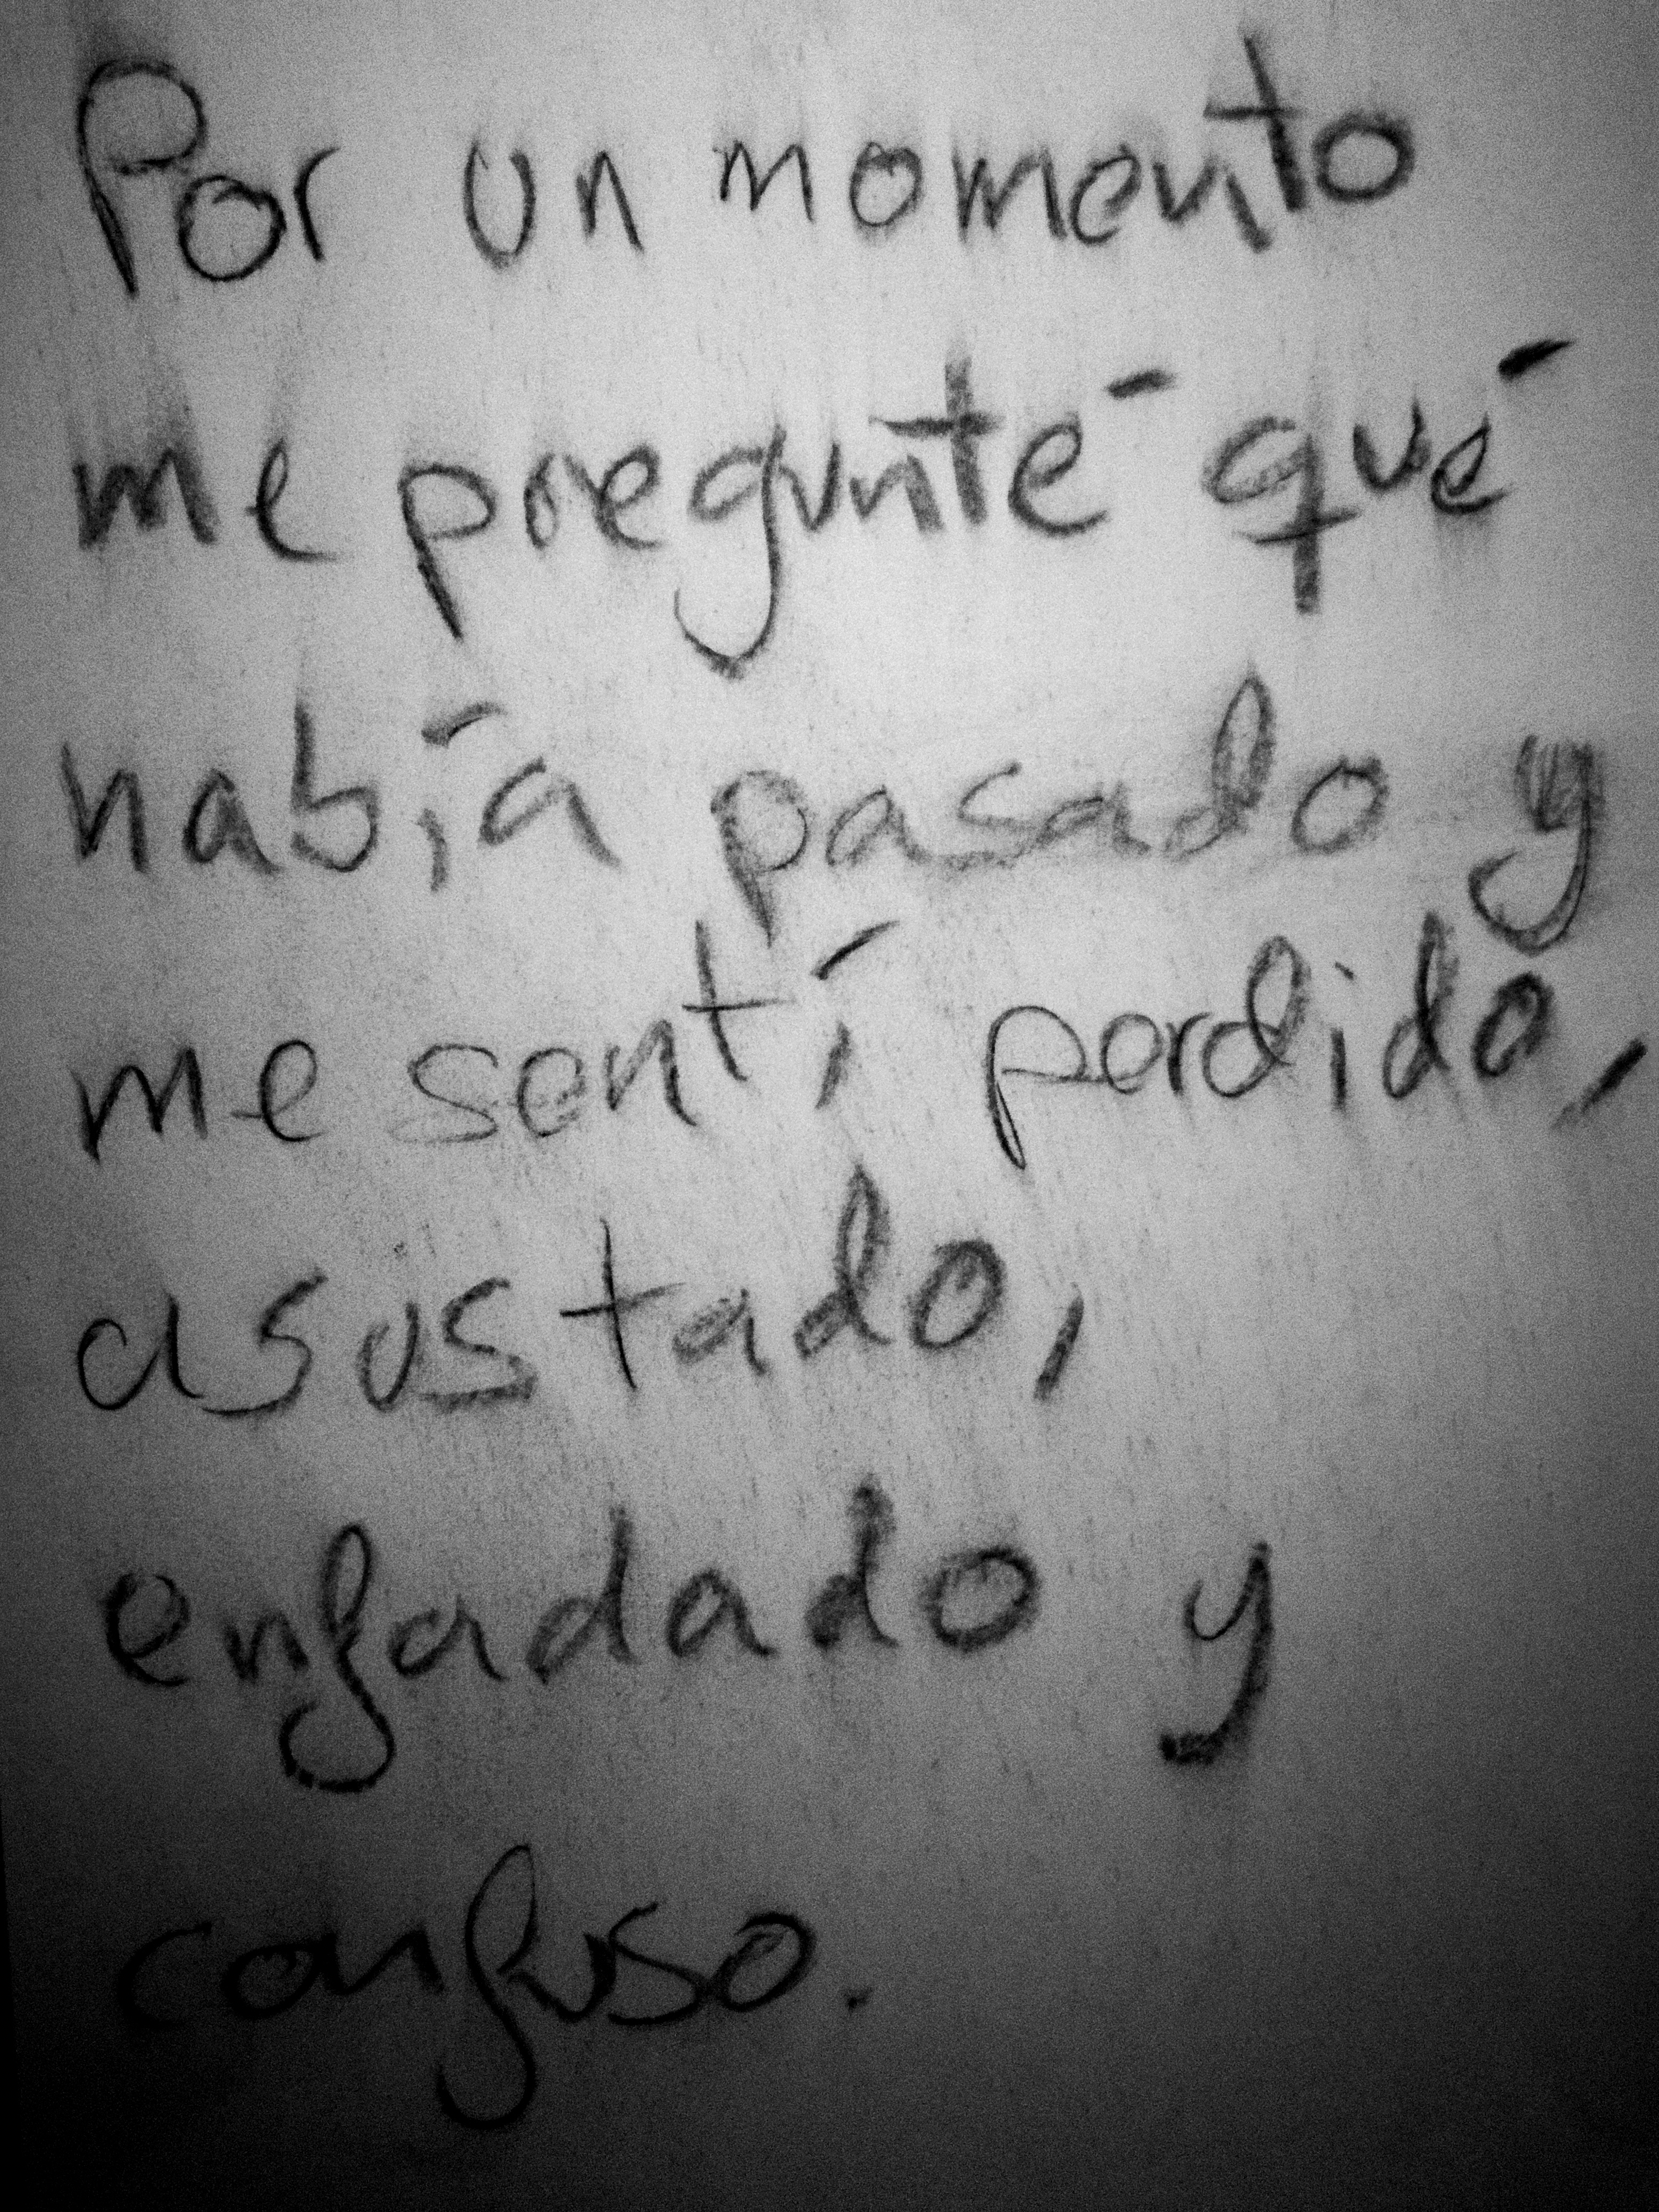 Por un momento
me pregunté qué
había pasado y
me sentí perdido,
asustado,
enfadado y
confuso.